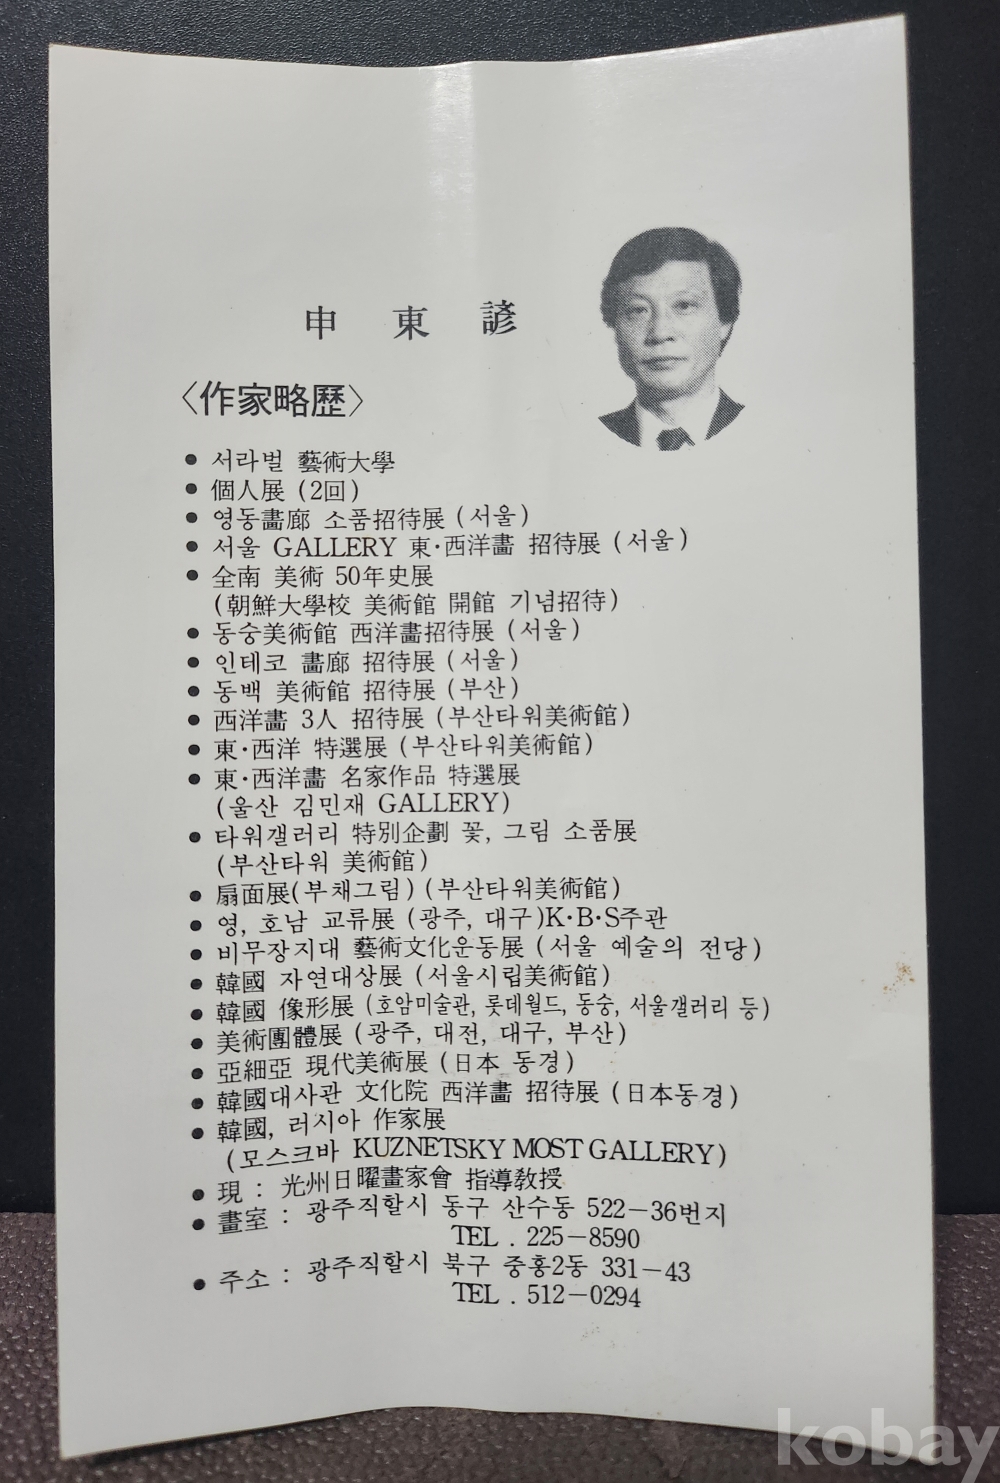 申 東 諺
〈作家略歷〉
● 서라벌 藝術大學
● 個人展 (2回)
● 영동畵廊 소품招待展 (서울)
● 서울 GALLERY 東·西洋畵 招待展 (서울)
● 全南 美術 50年史展
(朝鮮大學校 美術館 開館 기념招待)
● 동숭美術館 西洋畵招待展 (서울)
● 인테코 畵廊 招待展 (서울)
● 동백 美術館 招待展 (부산)
● 西洋畵 3人 招待展 (부산타워美術館)
● 東·西洋 特選展 (부산타워美術館)
● 東·西洋畵 名家作品 特選展
(울산 김민재 GALLERY)
● 타워갤러리 特別企劃 꽃, 그림 소품展
(부산타워 美術館)
● 扇面展(부채그림) (부산타워美術館)
● 영, 호남 교류展 (광주, 대구)K·B·S주관
● 비무장지대 藝術文化운동展 (서울 예술의 전당)
● 韓國 자연대상展 (서울시립美術館)
● 韓國 像形展 (호암미술관, 롯데월드, 동숭, 서울갤러리 등)
● 美術團體展 (광주, 대전, 대구, 부산)
● 亞細亞 現代美術展 (日本 동경)
● 韓國대사관 文化院 西洋畵 招待展 (日本동경)
● 韓國, 러시아 作家展
(모스크바 KUZNETSKY MOST GALLERY)
● 現 : 光州日曜畵家會 指導敎授
● 畵室 : 광주직할시 동구 산수동 522-36번지
TEL . 225-8590
● 주소 : 광주직할시 북구 중흥2동 331-43
TEL . 512-0294
kobay